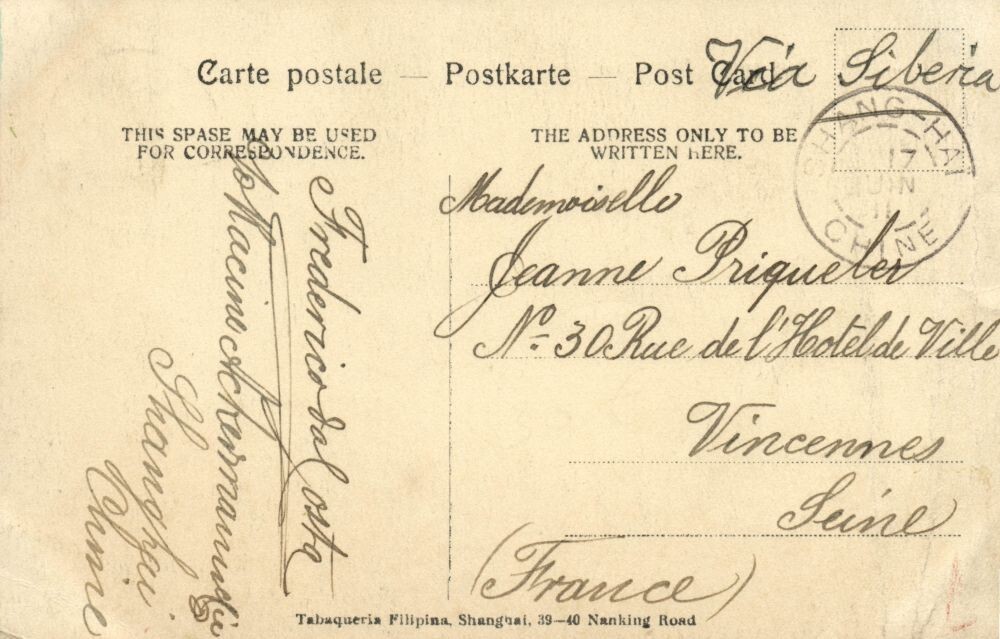 Carte postale — Postkarte — Post Card
Via Siberia
THIS SPASE MAY BE USED
FOR CORRESPONDENCE.
THE ADDRESS ONLY TO BE
WRITTEN HERE.
SHANG-HAI
17
JUIN
11
CHINE
Frederico da Costa
Shanghai
Chine
Mademoiselle
Jeanne Priqueler
Nº 30 Rue de l'Hotel de Ville
Vincennes
Seine
(France)
Tabaqueria Filipina, Shanghai, 39—40 Nanking Road